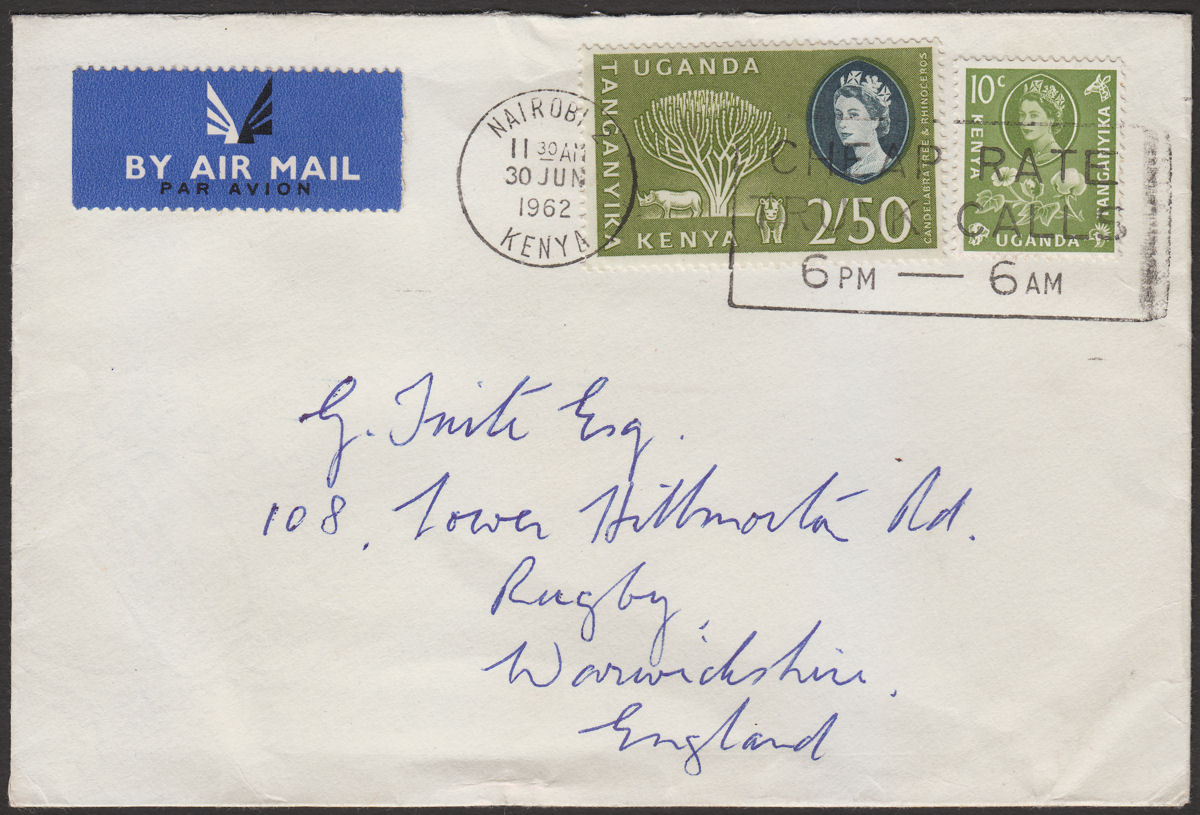 BY AIR MAIL
PAR AVION
NAIROBI
11 30 AM
30 JUN
1962
KENYA
UGANDA
TANGANYIKA
KENYA
2/50
CANDELABRA TREE & RHINOCEROS
10c
KENYA
TANGANYIKA
UGANDA
CHEAP RATE
TRUNK CALLS
6 PM — 6 AM
G. Esq.
108, Lower Hillmorton Rd.
Rugby,
Warwickshire.
England